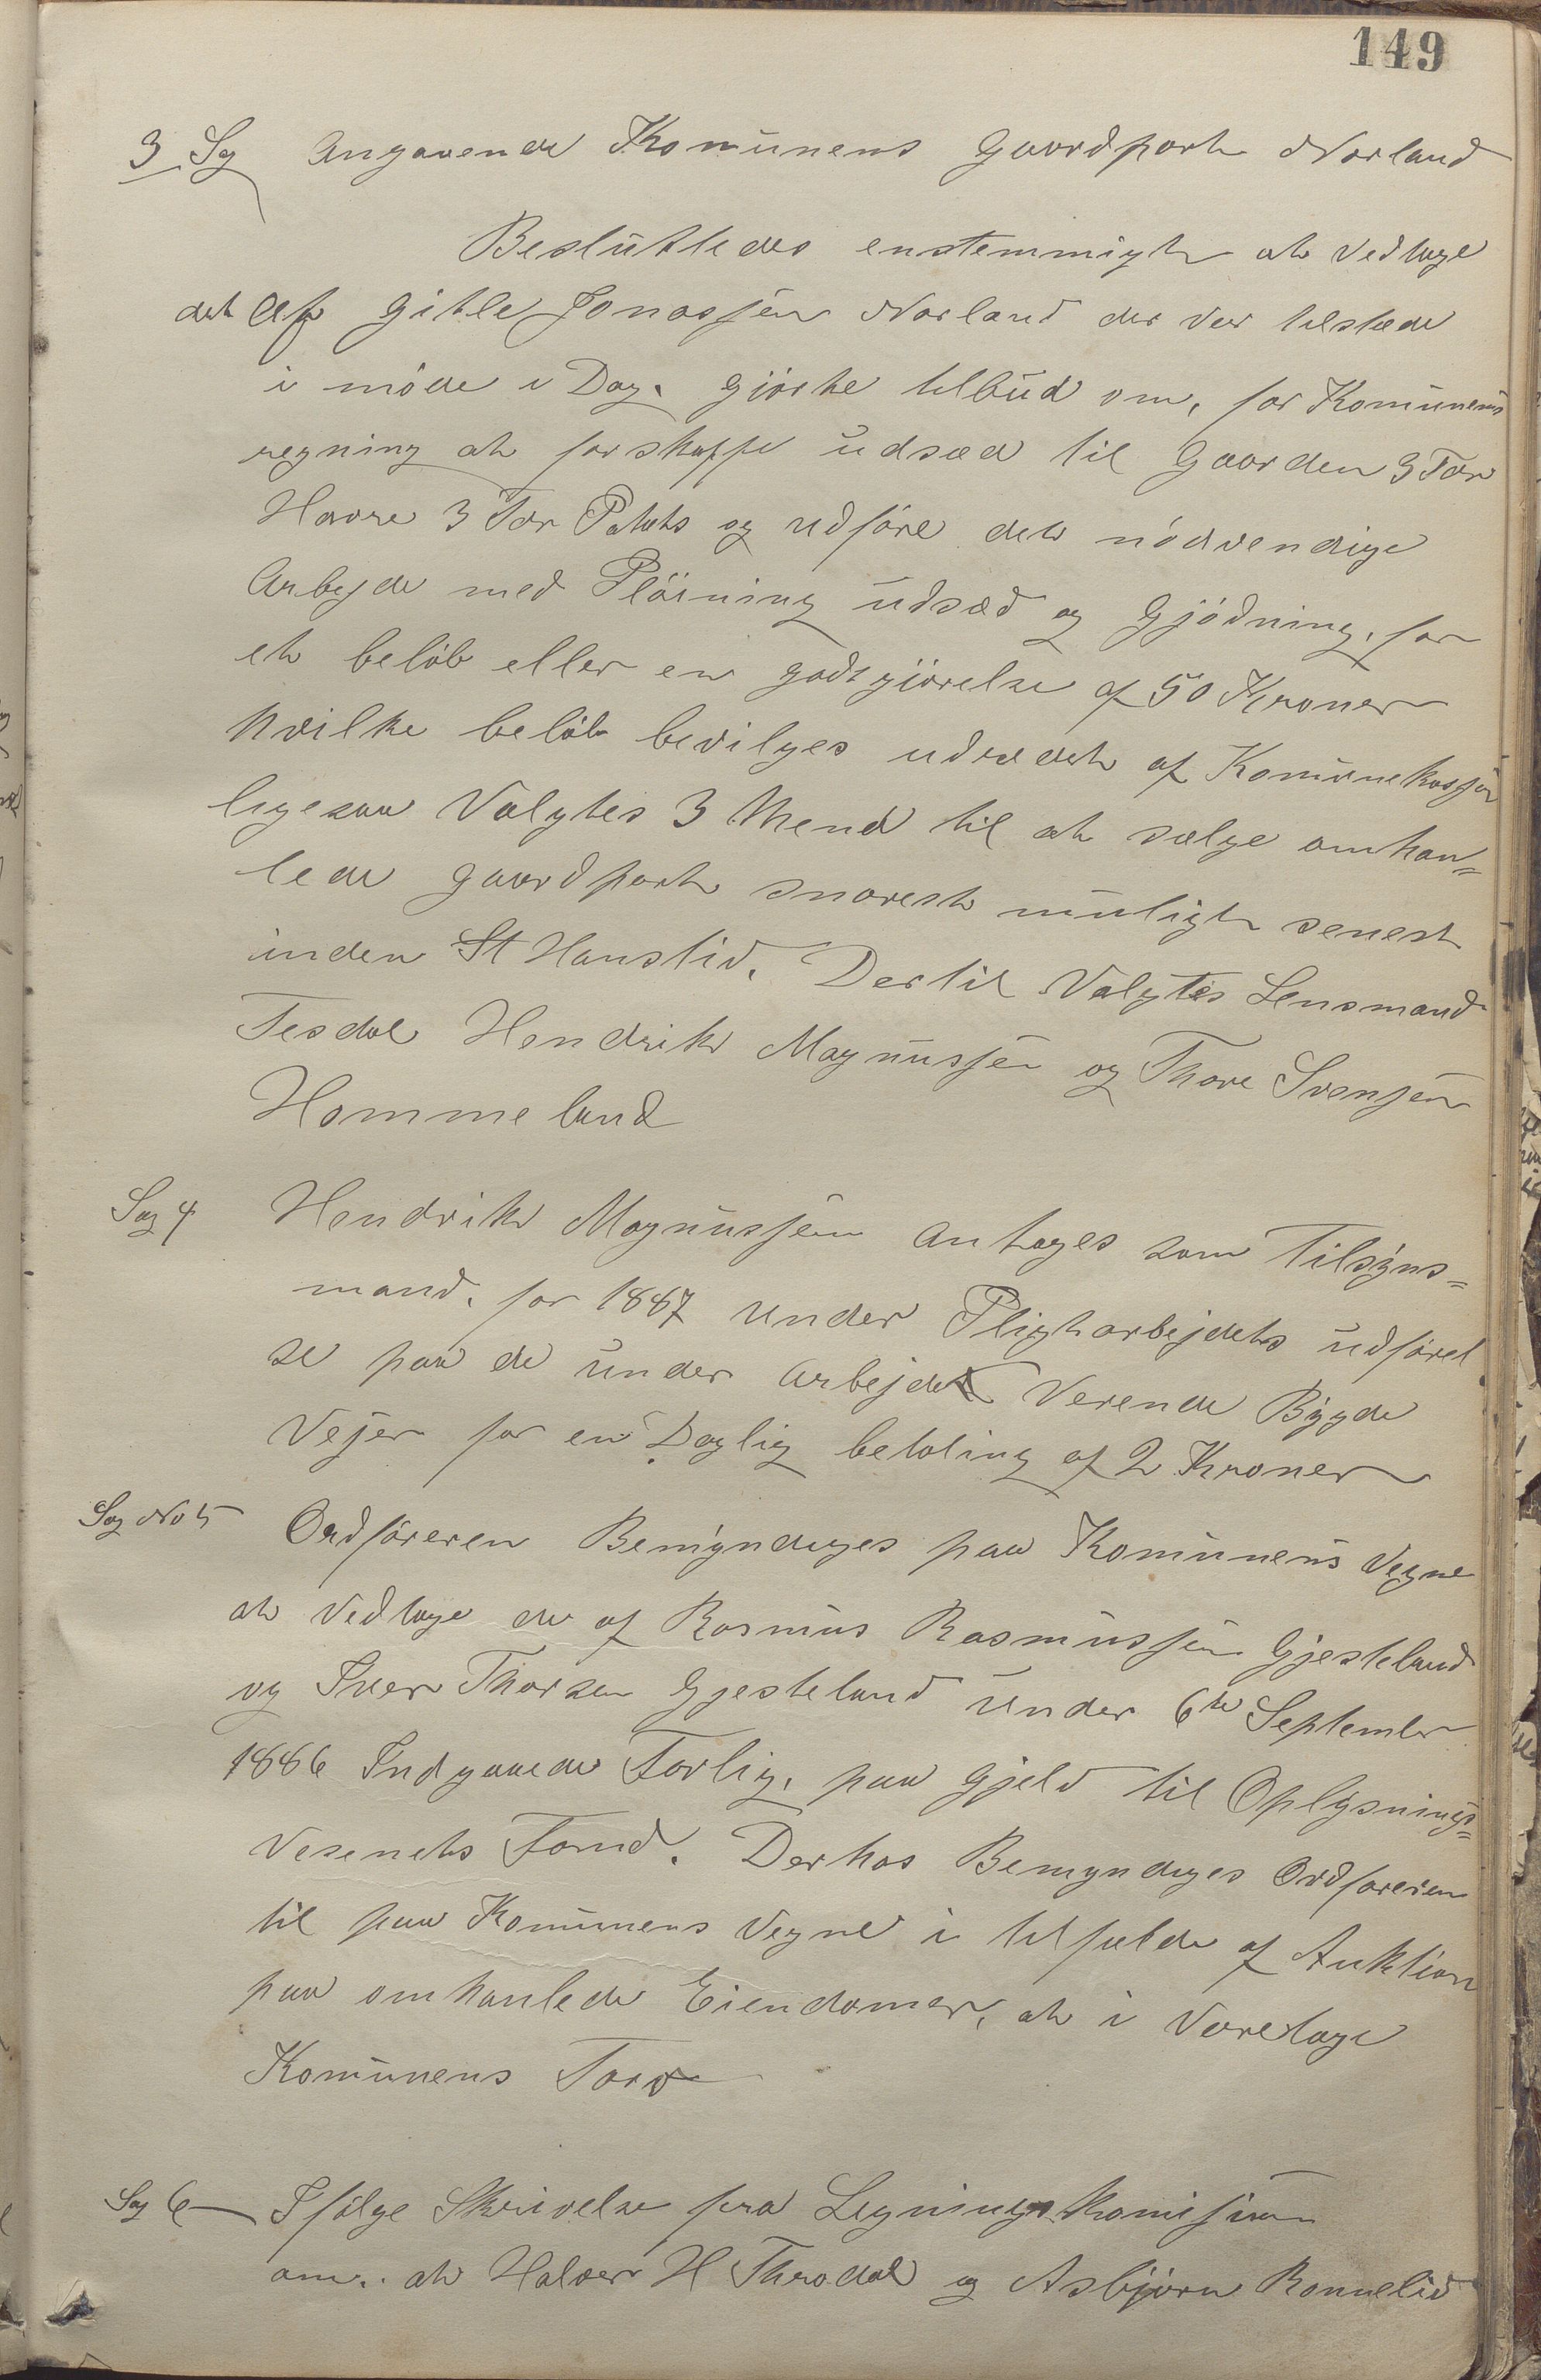 149
3 Sg Angaaende Komunens Gaardpart Norland
Besluttedes enstemmigt at Vedtage
det Af Gitle Jonassen Norland der var tilstede
i møde i Dag. gjorte tilbud om, for Komunens
regning at forskaffe udsæd til Gaarden 3 Tdr
Havre 3 Tdr Potets og udføre det nødvendige
Arbejde med Pløining udsæd og Gjødning, for
et beløb eller en godtgjørelse af 50 Kroner
hvilke beløb bevilges udredet af Komunekassen
ligesaa Valgtes 3 Mend til at sælge omhan=
lede gaardpart snarest muligt senest
inden St Hanstid. Dertil Valgtes Lensmand
Tesdal Hendrik Magnussen og Thore Svensen
Homme land
Sag 4 Hendrik Magnussen Antages som Tilsyns=
mand. for 1887 under Pligtarbejdets udførel
se paa de under Arbejde Verende Bygde
Vejer for en Daglig betaling af 2 Kroner
Sag No 5 Ordføreren Bemyndiges paa Komunens Vegne
at Vedtage de af Rasmus Rasmussen Gjesteland
og Iver Thorsen Gjesteland under 6te September
1886 Indgaaede Forlig, paa Gjeld til Oplysnings=
Vesenets Fond. Derhos Bemyndiges Ordføreren
til paa Komunens Vegne i tilfælde af Auktion
paa omhanlede Eiendomer, at i Varetage
Komunens Tarv
Sag 6 Ifølge Skrivelse fra Ligningskomisionen
om. at Halvor H Throdal og Asbjørn Ronnelid